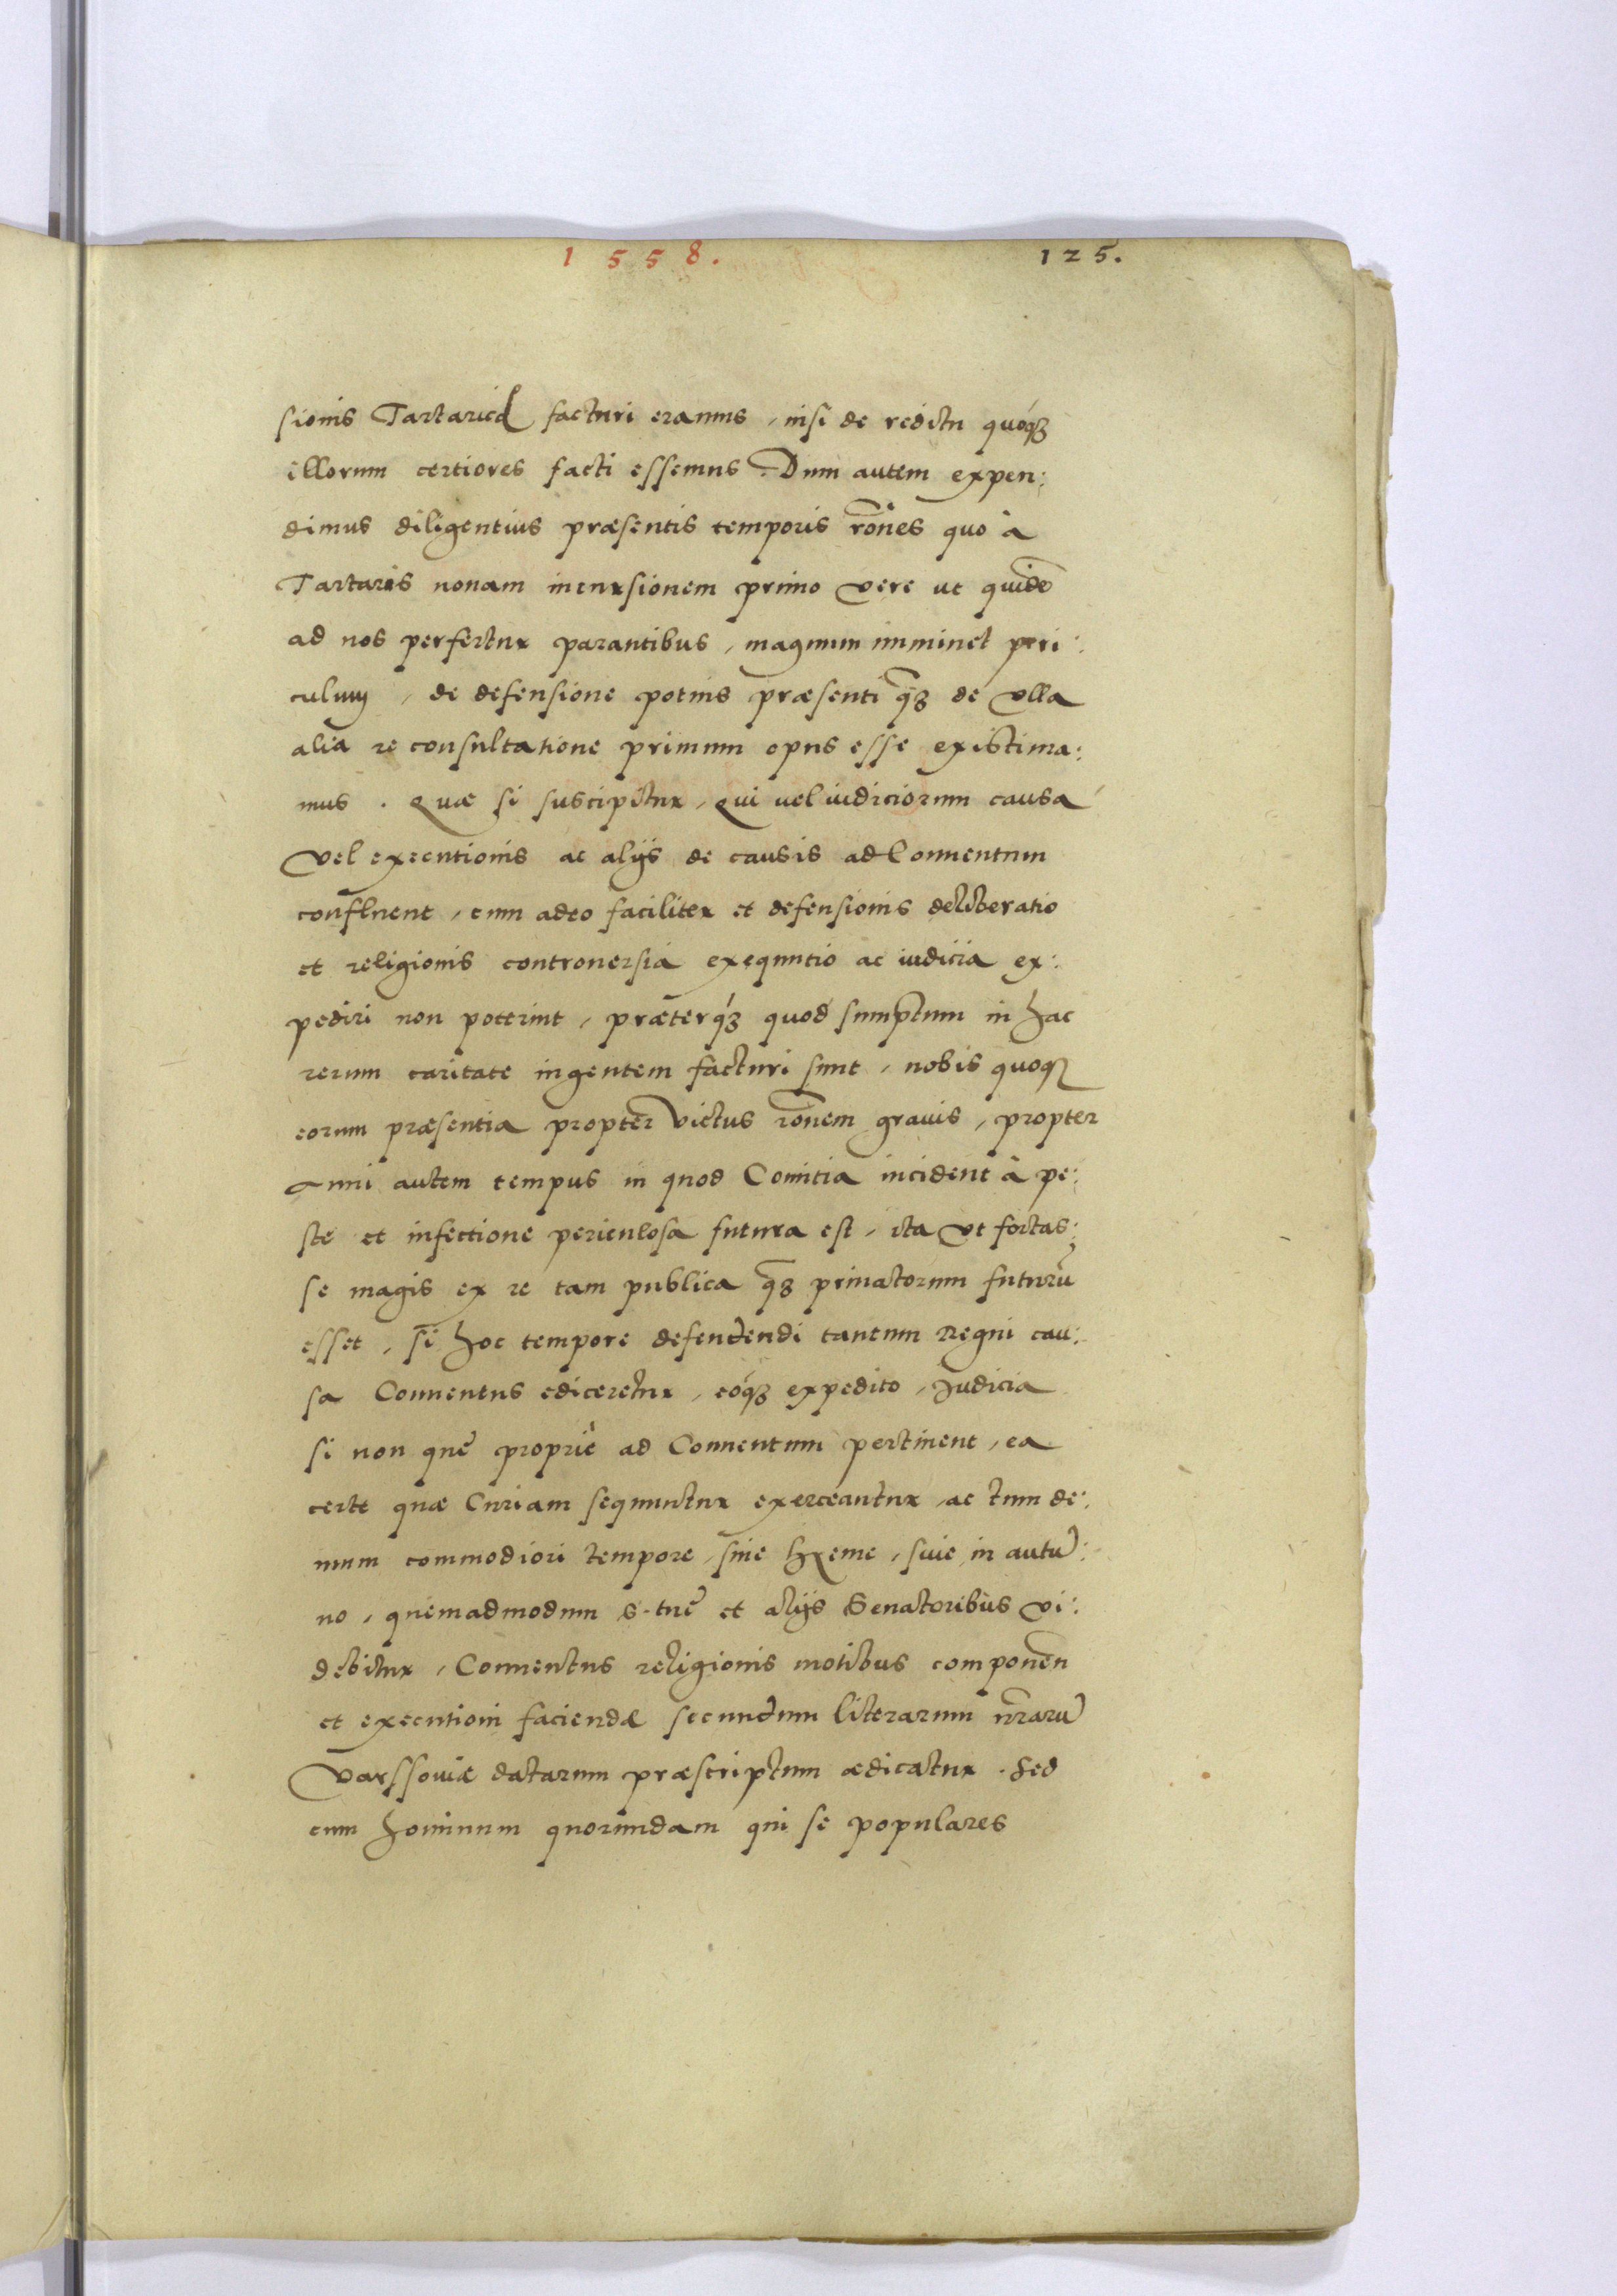 1558. 125.
sionis Tartaricæ facturi eramus, nisi de reditu quóqꝫ
illorum certiores facti essemus. Dum autem expen:
dimus diligentius præsentis temporis rōnes quo à
Tartaris nouam incursionem primo vere ut quidē
ad nos perfertur parantibus, magnum imminet peri:
culum, de defensione potius præsenti q̄ꝫ de vlla
alia re consultatione primum opus esse existima:
mus. Quæ si suscipitur, qui uel iudiciorum causa
vel executionis ac alijs de causis ad Conuentum
confluent, cum adeo faciliter et defensionis deliberatio
et religionis controuersia exequutio ac iudicia ex:
pediri non poterint, præterq́ꝫ quod sumptum in hac
rerum caritate ingentem facturi sunt, nobis quoqꝫ
eorum præsentia propter victus rōnem grauis, propter
anni autem tempus in quod Comitia incident à pe:
ste et infectione periculosa futura est, ita vt fortas:
se magis ex re tam publica q̄ꝫ priuatorum futurū
esset, si hoc tempore defendendi tantum Regni cau:
sa Conuentus ediceretur, eóqꝫ expedito, Iudicia
si non quę propriè ad Conuentum pertinent, ea
certe quæ Curiam sequuntur exerceantur, ac tum de:
mum commodiori tempore, siue hyeme, siue in autū:
no, quemadmodum S. tuę et alijs Senatoribus vi:
debitur, Conuentus religionis motibus componēn
et executioni faciendæ secundum literarum nr̄arū
Varssouiæ datarum præscriptum ædicatur. Sed
cum hominum quorundam qui se populares